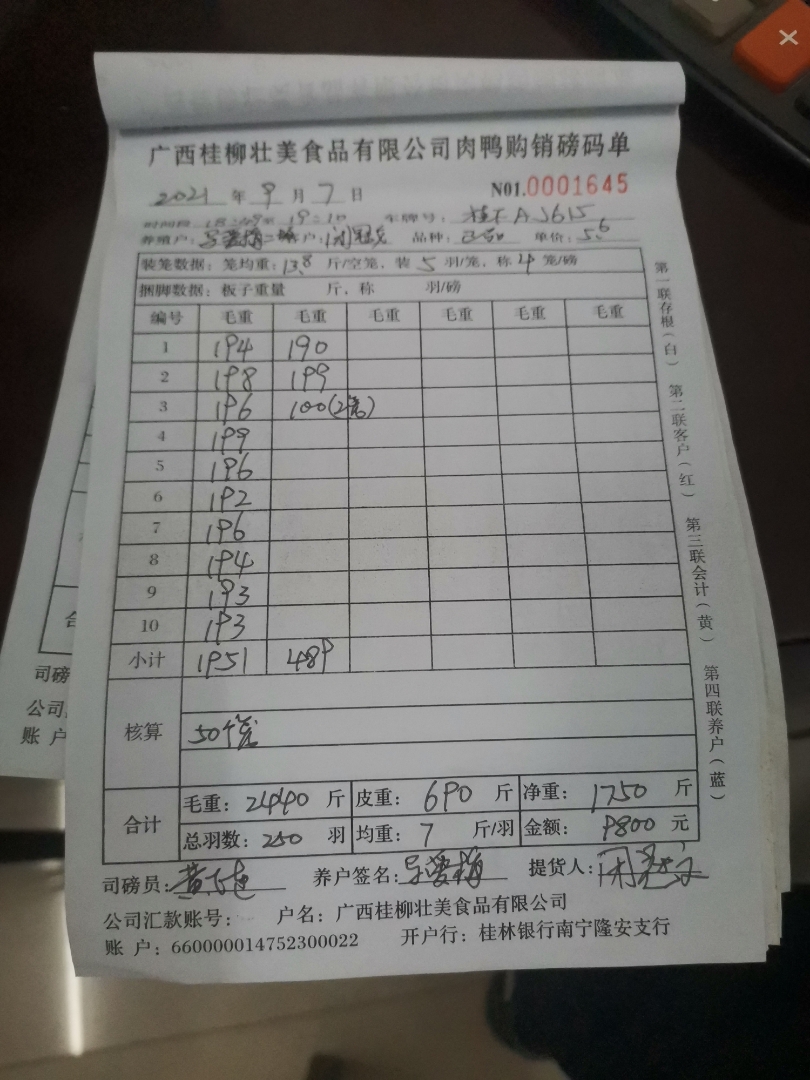 广西桂柳壮美食品有限公司肉鸭购销磅码单
2021 年 9 月 7 日 N01.0001645
时间段 18:49至 19:10 车牌号: 桂 A J615
养殖户: 客户: 品种: 单价: 5.6
装笼数据: 笼均重: 13.8 斤/空笼, 装 5 羽/笼, 称 4 笼/磅
捆脚数据: 板子重量 斤, 称 羽/磅
编号 毛重 毛重 毛重 毛重 毛重 毛重
1 194 190
2 198 199
3 196 100(2笼)
4 199
5 196
6 192
7 196
8 194
9 193
10 193
小计 1951 489
核算 50个笼
合计 毛重: 2440 斤 皮重: 690 斤 净重: 1750 斤
总羽数: 250 羽 均重: 7 斤/羽 金额: 9800 元
司磅员: 黄 养户签名: 爱梅 提货人:
公司汇款账号: 户名: 广西桂柳壮美食品有限公司
账 户: 660000014752300022 开户行: 桂林银行南宁隆安支行
第一联存根(白) 第二联客户(红) 第三联会计(黄) 第四联养户(蓝)
合
司磅
公司
账 户